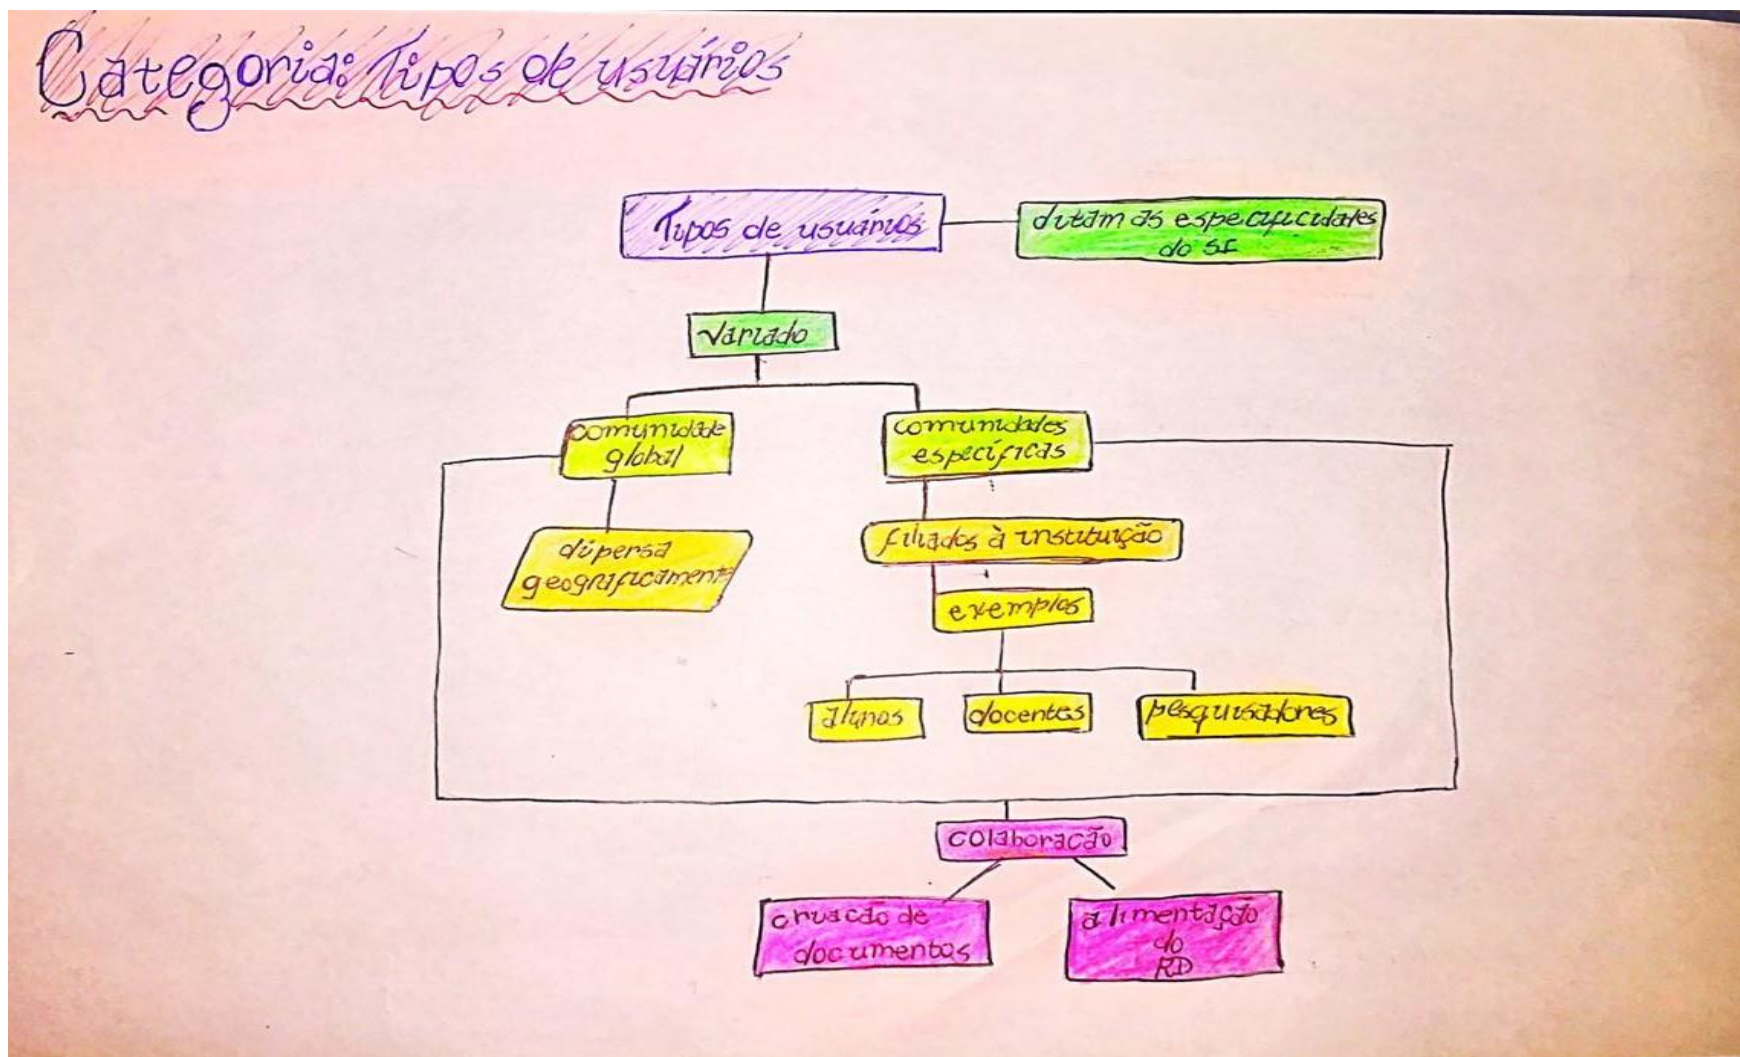 Categoria: Tipos de usuários
Tipos de usuários
ditam as especificidades
do SI
Variado
comunidade
global
comunidades
específicas
dipersa
geograficamente
filiados à instituição
exemplos
alunos
docentes
pesquisadores
colaboração
criação de
documentos
alimentação
do
RD